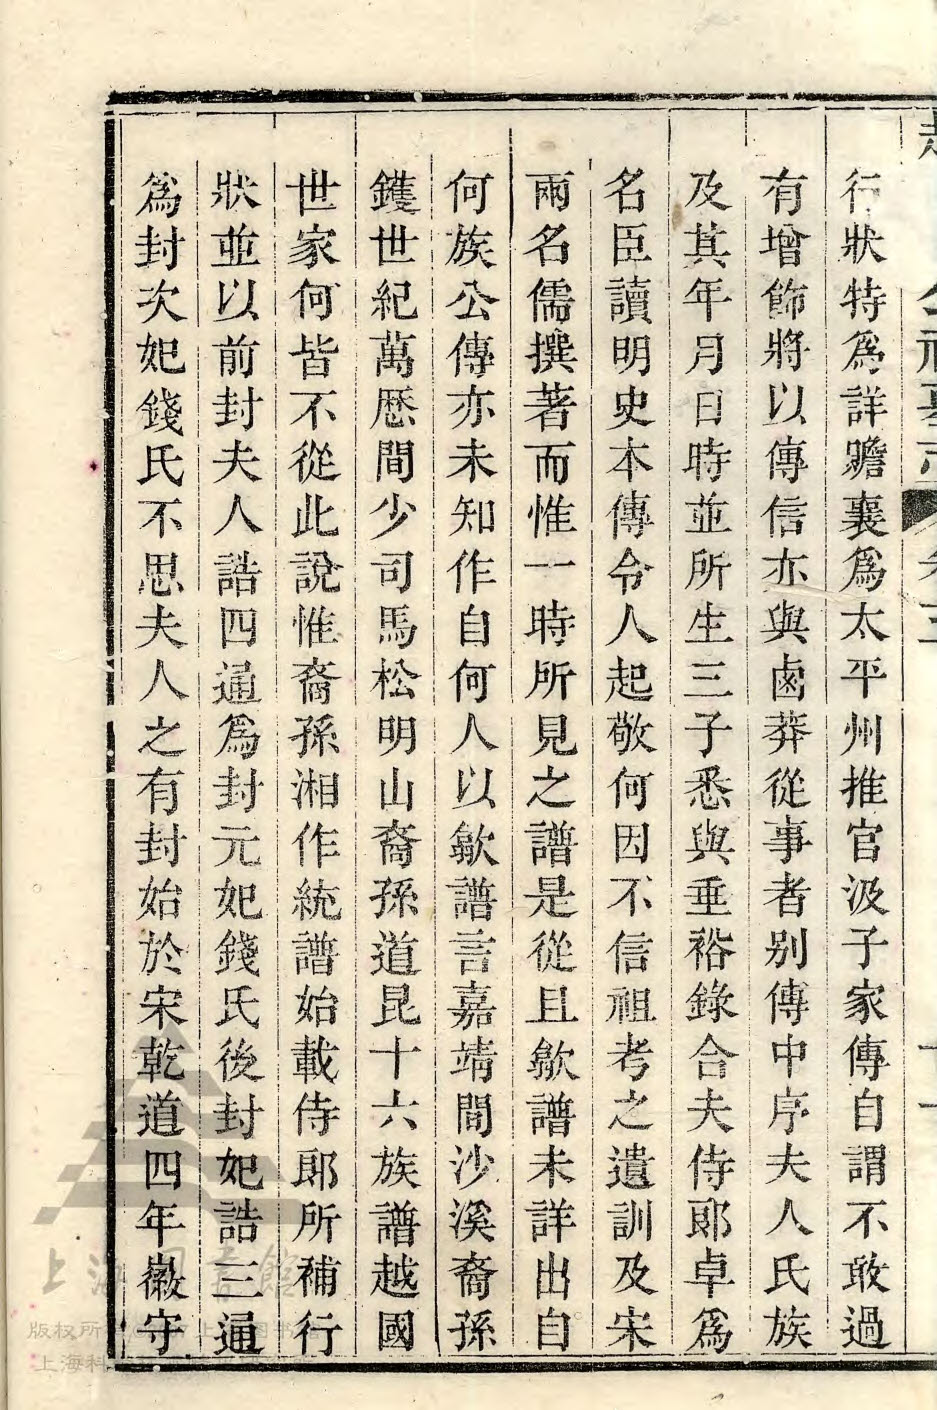 行狀特爲詳贍襄爲太平州推官汲子家傳自謂不敢過
有增飾將以傳信亦與鹵莽從事者别傳中序夫人氏族
及其年月日時並所生三子悉與垂裕錄合夫侍郞卓爲
名臣讀明史本傳令人起敬何因不信祖考之遺訓及宋
兩名儒撰著而惟一時所見之譜是從且歙譜未詳出自
何族公傳亦未知作自何人以歙譜言嘉靖間沙溪裔孫
鑊世紀萬厯間少司馬松明山裔孫道昆十六族譜越國
世家何皆不從此說惟裔孫湘作統譜始載侍郞所補行
狀並以前封夫人誥四通爲封元妃錢氏後封妃誥三通
爲封次妃錢氏不思夫人之有封始於宋乾道四年徽守
上海圖書館